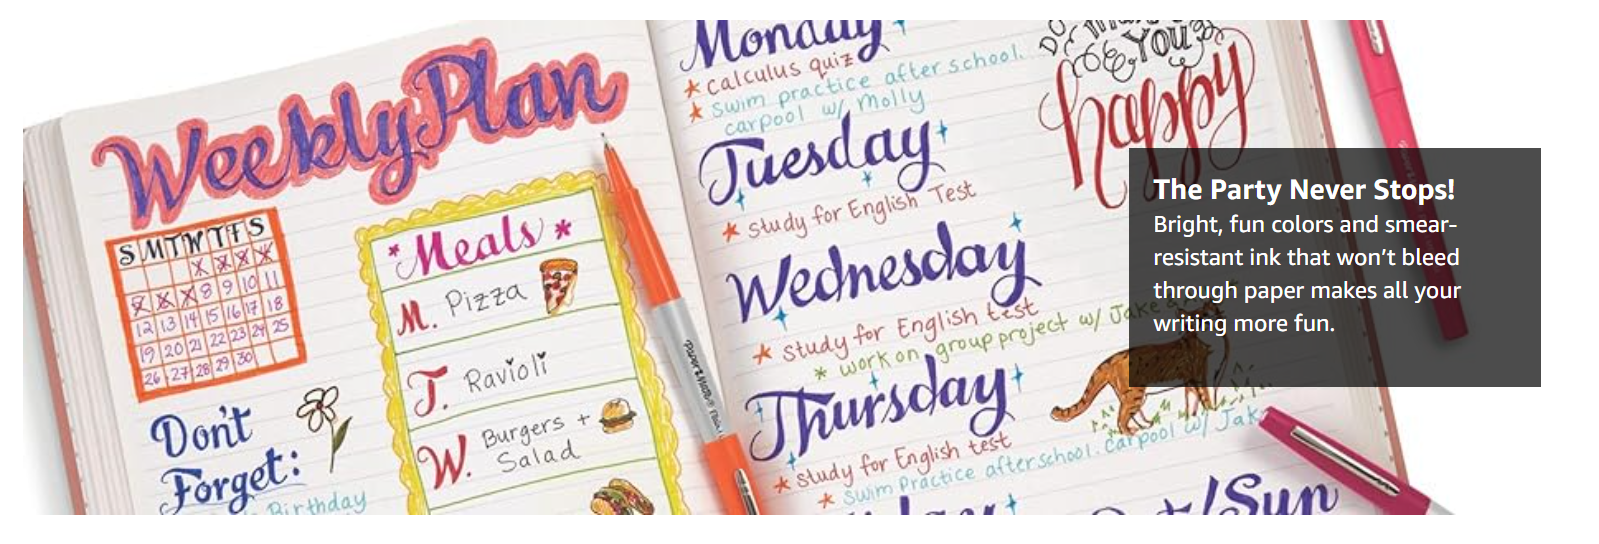 Weekly Plan
S M T W T F S
X X X X
X X X 8 9 10 11
12 13 14 15 16 17 18
19 20 21 22 23 24 25
26 27 28 29 30
Don't
Forget:
Birthday
*Meals*
M. Pizza
T. Ravioli
W. Burgers +
Salad
PaperMate
Monday
* calculus quiz
* swim practice after school.
carpool w/ Molly
Tuesday
* study for English Test
Wednesday
* study for English test
* work on group project w/ Jake
Thursday
* study for English test
* swim Practice after school. carpool w/ Jake
/Sun
You
happy
The Party Never Stops!
Bright, fun colors and smear-
resistant ink that won't bleed
through paper makes all your
writing more fun.